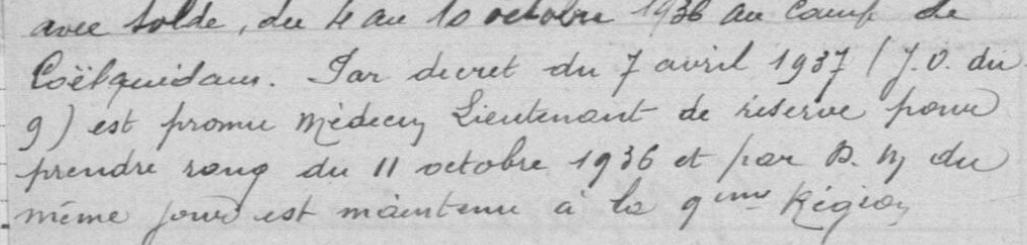 avec solde, du 4 au 10 octobre 1936 au camp de
Coëtquidan. Par decret du 7 avril 1937 (J.O. du
9) est promu Médecin Lieutenant de réserve pour
prendre rang du 11 octobre 1936 et par D. M du
même jour est maintenu à la 9ème Région